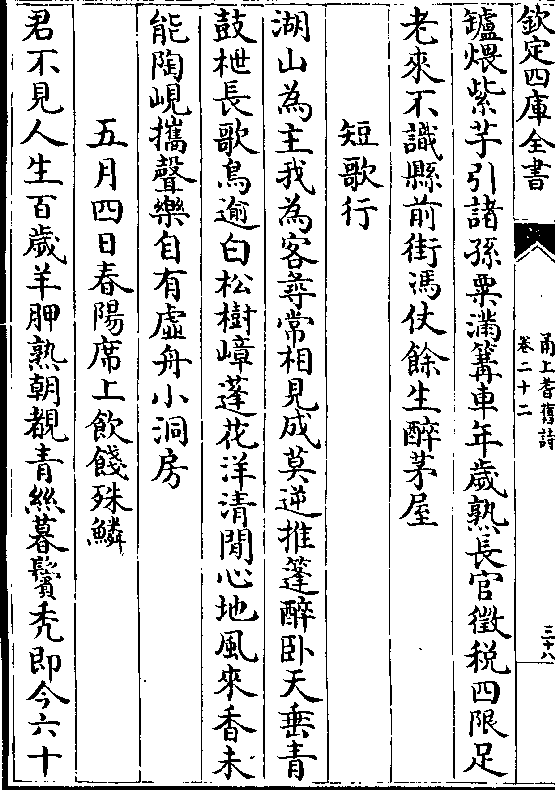 欽定四庫全書
甬上耆舊詩
卷二十二
三十八
鑪煨紫芋引諸孫粟滿篝車年歲熟長官徵稅四限足
老來不識縣前街馮仗餘生醉茅屋
短歌行
湖山為主我為客尋常相見成莫逆推篷醉卧天垂青
鼓枻長歌鳥逾白松樹嶂蓬花洋清閒心地風來香未
能陶峴攜聲樂自有虛舟小洞房
五月四日春陽席上飲餞殊鱗
君不見人生百歲羊胛熟朝覩青絲暮鬢秃即今六十